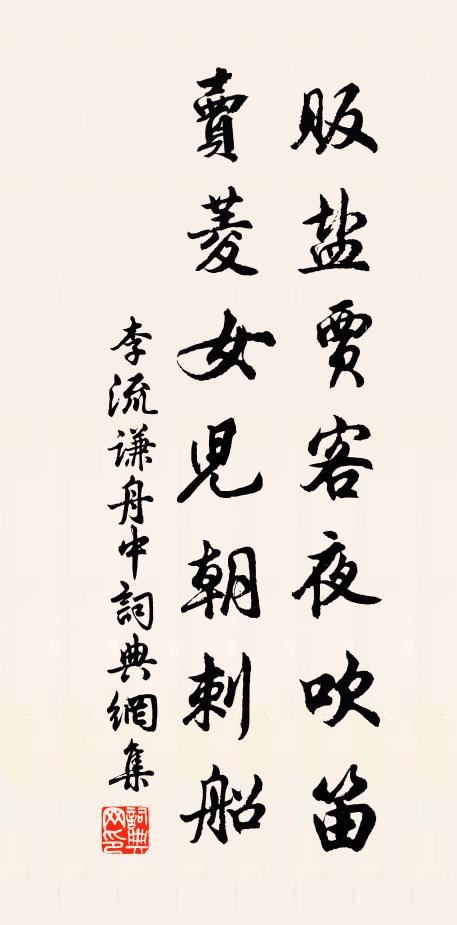 販盐賈客夜吹笛
賣菱女児朝刺船
李流谦舟中詞典網集
詞典网印